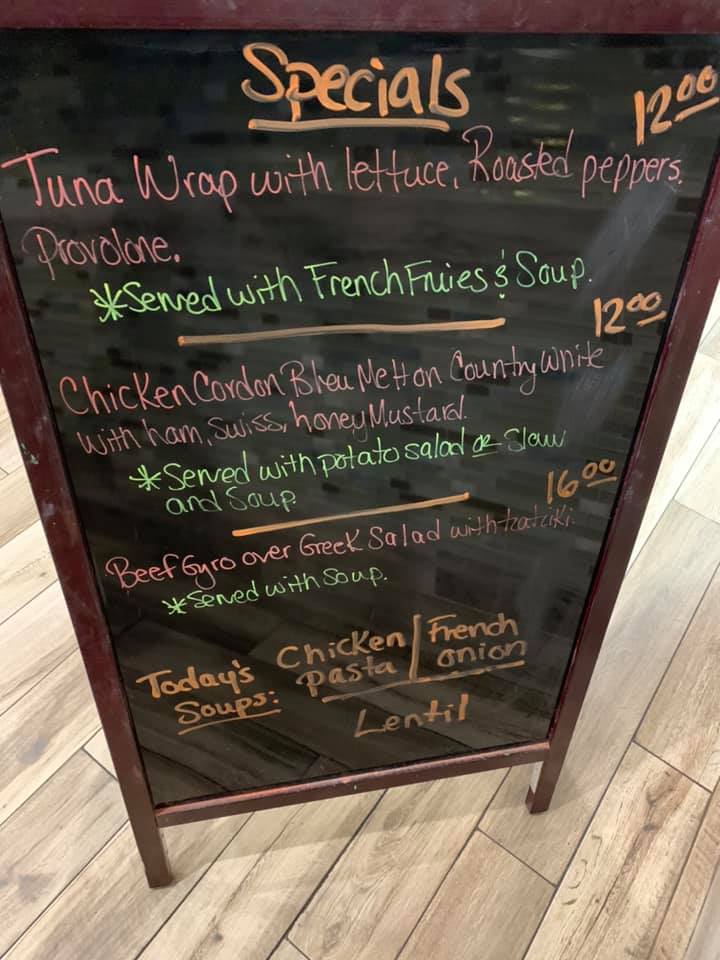 Specials
12.00
Tuna Wrap with lettuce, Roasted peppers,
Provolone.
*Served with French Fruies & Soup.
12.00
Chicken Cordon Bleu Melt on Country white
with ham, swiss, honey Mustard.
*Served with potato salad or Slaw
and Soup
16.00
Beef Gyro over Greek Salad with tzatziki.
*Served with Soup.
Today's Soups:
Chicken pasta
French onion
Lentil